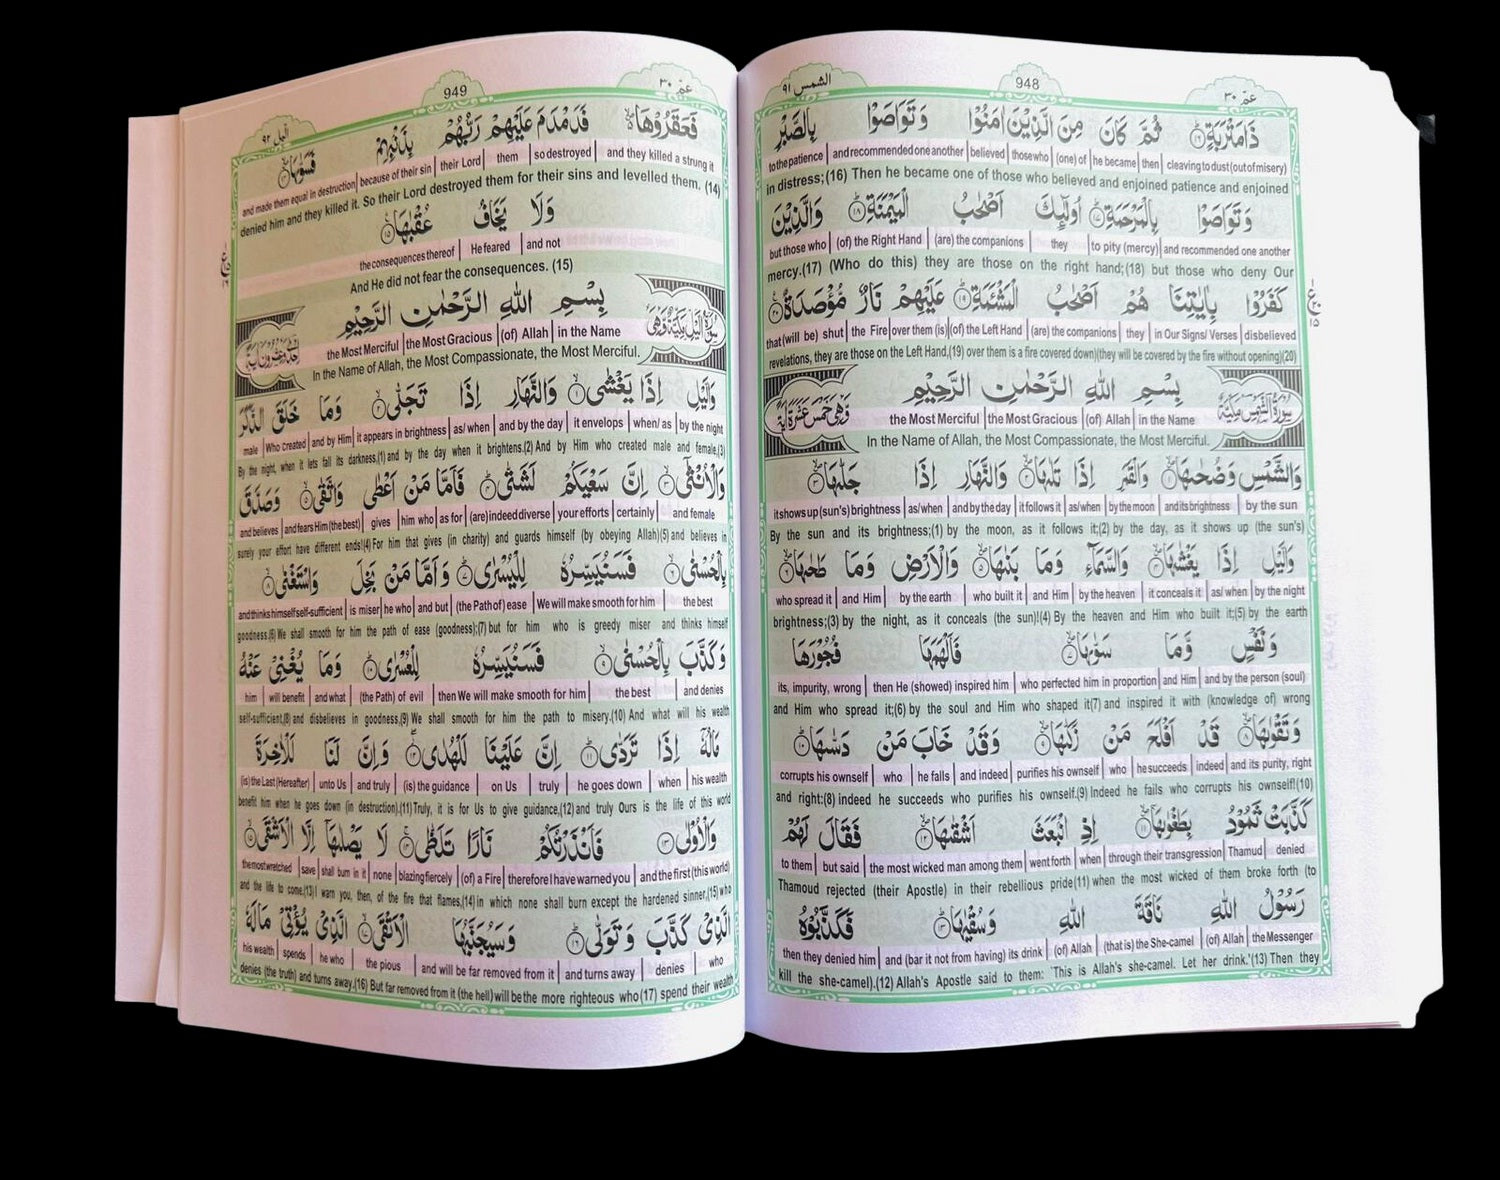 الشمس ٩١
948
عمّ ٣٠
ذَامَتْرَبَةٍ ثُمَّ كَانَ مِنَ الَّذِيْنَ اٰمَنُوْا وَتَوَاصَوْا بِالصَّبْرِ
to the patience | and recommended one another | believed | those who | (one) of | he became | then | cleaving to dust (out of misery)
in distress;(16) Then he became one of those who believed and enjoined patience and enjoined
وَتَوَاصَوْا بِالْمَرْحَمَةِ اُولٰٓئِكَ اَصْحٰبُ الْمَيْمَنَةِ وَالَّذِيْنَ
but those who | (of) the Right Hand | (are) the companions | they | to pity (mercy) | and recommended one another
mercy.(17) (Who do this) they are those on the right hand;(18) but those who deny Our
كَفَرُوْا بِاٰيٰتِنَا هُمْ اَصْحٰبُ الْمَشْـَٔمَةِ عَلَيْهِمْ نَارٌ مُّؤْصَدَةٌ
that (will be) shut | the Fire | over them (is) | (of) the Left Hand | (are) the companions | they | in Our Signs/ Verses | disbelieved
revelations, they are those on the Left Hand,(19) over them is a fire covered down)(they will be covered by the fire without opening)(20)
سورة الشمس مكية
بِسْمِ اللهِ الرَّحْمٰنِ الرَّحِيْمِ
وهي خمس عشرة اية
the Most Merciful | the Most Gracious | (of) Allah | in the Name
In the Name of Allah, the Most Compassionate, the Most Merciful.
وَالشَّمْسِ وَضُحٰىهَا وَالْقَمَرِ اِذَا تَلٰىهَا وَالنَّهَارِ اِذَا جَلّٰىهَا
it shows up (sun's) brightness | as/when | and by the day | it follows it | as/when | by the moon | and its brightness | by the sun
By the sun and its brightness;(1) by the moon, as it follows it;(2) by the day, as it shows up (the sun's)
وَالَّيْلِ اِذَا يَغْشٰىهَا وَالسَّمَآءِ وَمَا بَنٰىهَا وَالْاَرْضِ وَمَا طَحٰىهَا
who spread it | and Him | by the earth | who built it | and Him | by the heaven | it conceals it | as/ when | by the night
brightness;(3) by the night, as it conceals (the sun)!(4) By the heaven and Him who built it;(5) by the earth
وَنَفْسٍ وَّمَا سَوّٰىهَا فَاَلْهَمَهَا فُجُوْرَهَا
its, impurity, wrong | then He (showed) inspired him | who perfected him in proportion | and Him | and by the person (soul)
and Him who spread it;(6) by the soul and Him who shaped it(7) and inspired it with (knowledge of) wrong
وَتَقْوٰىهَا قَدْ اَفْلَحَ مَنْ زَكّٰىهَا وَقَدْ خَابَ مَنْ دَسّٰىهَا
corrupts his ownself | who | he falls | and indeed | purifies his ownself | who | he succeeds | indeed | and its purity, right
and right:(8) indeed he succeeds who purifies his ownself.(9) Indeed he fails who corrupts his ownself!(10)
كَذَّبَتْ ثَمُوْدُ بِطَغْوٰىهَا اِذِ انْبَعَثَ اَشْقٰىهَا فَقَالَ لَهُمْ
to them | but said | the most wicked man among them | went forth | when | through their transgression | Thamud | denied
Thamoud rejected (their Apostle) in their rebellious pride(11) when the most wicked of them broke forth (to
رَسُوْلُ اللهِ نَاقَةَ اللهِ وَسُقْيٰهَا فَكَذَّبُوْهُ
then they denied him | and (bar it not from having) its drink | (of) Allah | (that is) the She-camel | (of) Allah | the Messenger
kill the she-camel).(12) Allah's Apostle said to them: 'This is Allah's she-camel. Let her drink.'(13) Then they
عمّ ٣٠
949
اليل ٩٢
فَعَقَرُوْهَا فَدَمْدَمَ عَلَيْهِمْ رَبُّهُمْ بِذَنْۢبِهِمْ فَسَوّٰىهَا
and made them equal in destruction | because of their sin | their Lord | them | so destroyed | and they killed a strung it
denied him and they killed it. So their Lord destroyed them for their sins and levelled them. (14)
وَلَا يَخَافُ عُقْبٰهَا
the consequences thereof | He feared | and not
And He did not fear the consequences. (15)
سورة اليل مكية وهي
بِسْمِ اللهِ الرَّحْمٰنِ الرَّحِيْمِ
احدى وعشرون اية
the Most Merciful | the Most Gracious | (of) Allah | in the Name
In the Name of Allah, the Most Compassionate, the Most Merciful.
وَالَّيْلِ اِذَا يَغْشٰى وَالنَّهَارِ اِذَا تَجَلّٰى وَمَا خَلَقَ الذَّكَرَ
male | Who created | and by Him | it appears in brightness | as/ when | and by the day | it envelops | when/ as | by the night
By the night, when it lets fall its darkness,(1) and by the day when it brightens.(2) And by Him who created male and female,(3)
وَالْاُنْثٰٓى اِنَّ سَعْيَكُمْ لَشَتّٰى فَاَمَّا مَنْ اَعْطٰى وَاتَّقٰى وَصَدَّقَ
and believes | and fears Him (the best) | gives | him who | as for | (are) indeed diverse | your efforts | certainly | and female
surely your effort have different ends!(4) For him that gives (in charity) and guards himself (by obeying Allah)(5) and believes in
بِالْحُسْنٰى فَسَنُيَسِّرُهٗ لِلْيُسْرٰى وَاَمَّا مَنْۢ بَخِلَ وَاسْتَغْنٰى
and thinks himself self-sufficient | is miser | he who | and but | (the Path of) ease | We will make smooth for him | the best
goodness,(6) We shall smooth for him the path of ease (goodness);(7) but for him who is greedy miser and thinks himself
وَكَذَّبَ بِالْحُسْنٰى فَسَنُيَسِّرُهٗ لِلْعُسْرٰى وَمَا يُغْنِيْ عَنْهُ
him | will benefit | and what | (the Path) of evil | then We will make smooth for him | the best | and denies
self-sufficient,(8) and disbelieves in goodness,(9) We shall smooth for him the path to misery.(10) And what will his wealth
مَالُهٗٓ اِذَا تَرَدّٰى اِنَّ عَلَيْنَا لَلْهُدٰى وَاِنَّ لَنَا لَلْاٰخِرَةَ
(is) the Last (Hereafter) | unto Us | and truly | (is) the guidance | on Us | truly | he goes down | when | his wealth
benefit him when he goes down (in destruction).(11) Truly, it is for Us to give guidance,(12) and truly Ours is the life of this world
وَالْاُوْلٰى فَاَنْذَرْتُكُمْ نَارًا تَلَظّٰى لَا يَصْلٰىهَآ اِلَّا الْاَشْقَى
the most wretched | save | shall burn in it | none | blazing fiercely | (of) a Fire | therefore I have warned you | and the first (this world)
and the life to come.(13) I warn you, then, of the fire that flames,(14) in which none shall burn except the hardened sinner,(15) who
الَّذِيْ كَذَّبَ وَتَوَلّٰى وَسَيُجَنَّبُهَا الْاَتْقَى الَّذِيْ يُؤْتِيْ مَالَهٗ
his wealth | spends | he who | the pious | and will be far removed from it | and turns away | denies | who
denies (the truth) and turns away.(16) But far removed from it (the hell) will be the more righteous who (17) spend their wealth